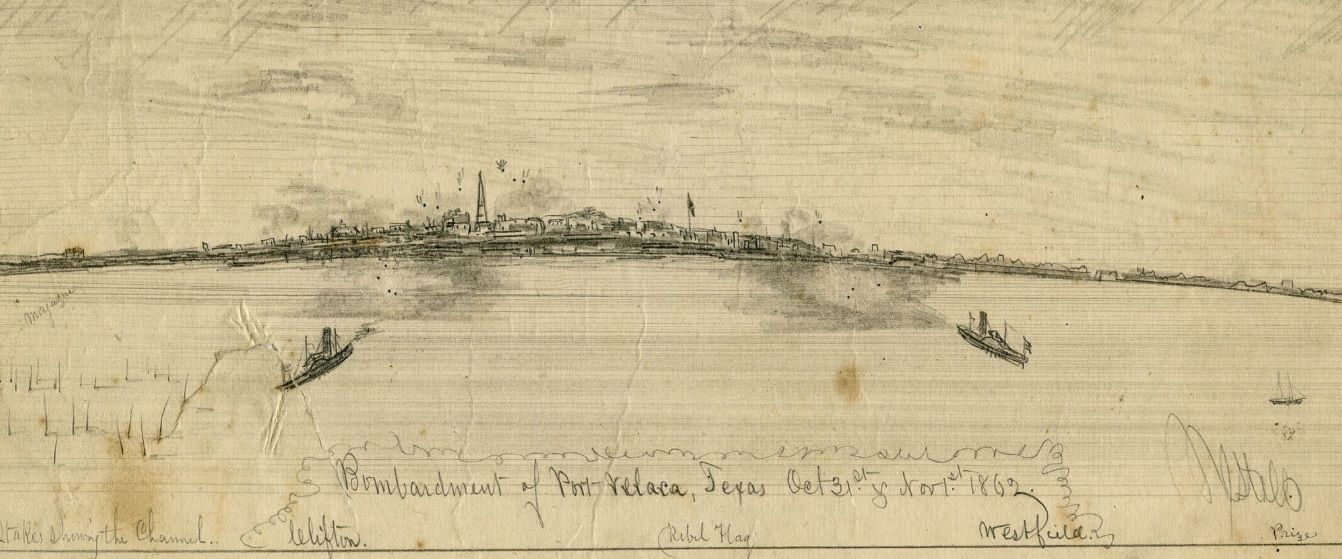 Magazine
Bombardment of Port Velaca, Texas Oct 31st & Nov 1st 1862.
Stakes showing the Channel..
Clifton.
Rebel Flag
Westfield.
Prize